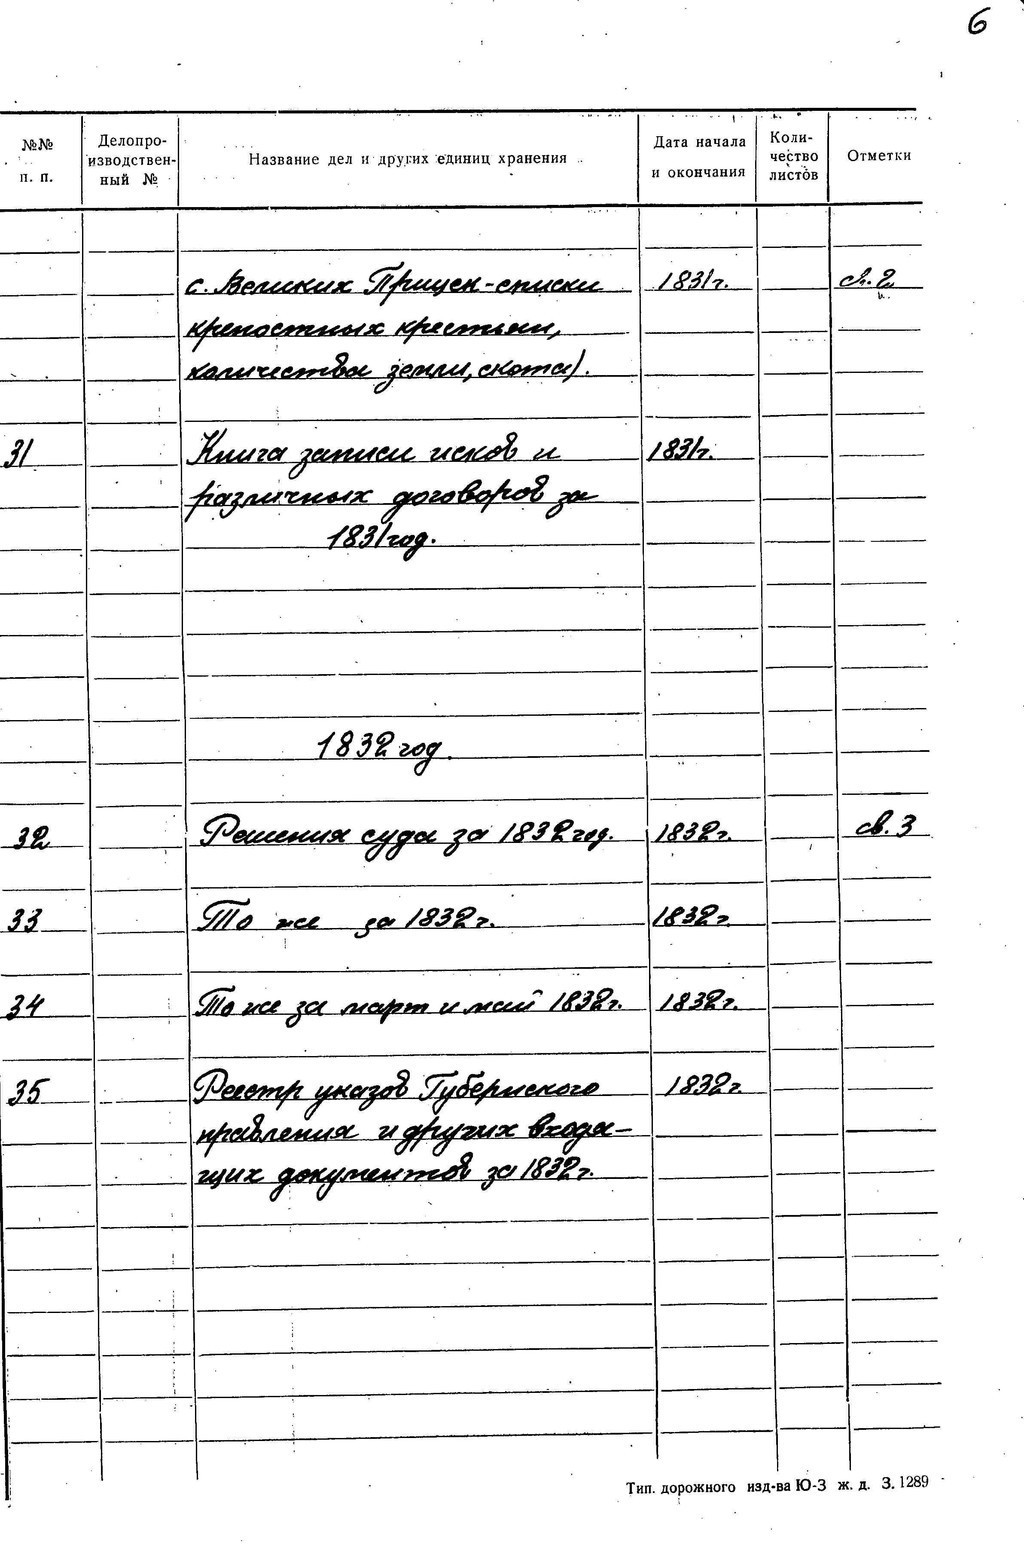 6
№№ п. п.
Делопроизводственный №
Название дел и других единиц хранения
Дата начала и окончания
Количество листов
Отметки
с. Великих Прицек - списки 1831г.
крепостных крестьян,
количества земли, скота).
31 Книга записи исков и 1831г.
различных договоров за
1831 год.
1832 год.
32 Решения суда за 1832 год. 1832г. св. 3
33 То же за 1832г. 1832г.
34 То же за март и май 1832г. 1832г.
35 Реестр указов Губернского 1832г
правления и других входя-
щих документов за 1832г.
Тип. дорожного изд-ва Ю-З ж. д. З. 1289